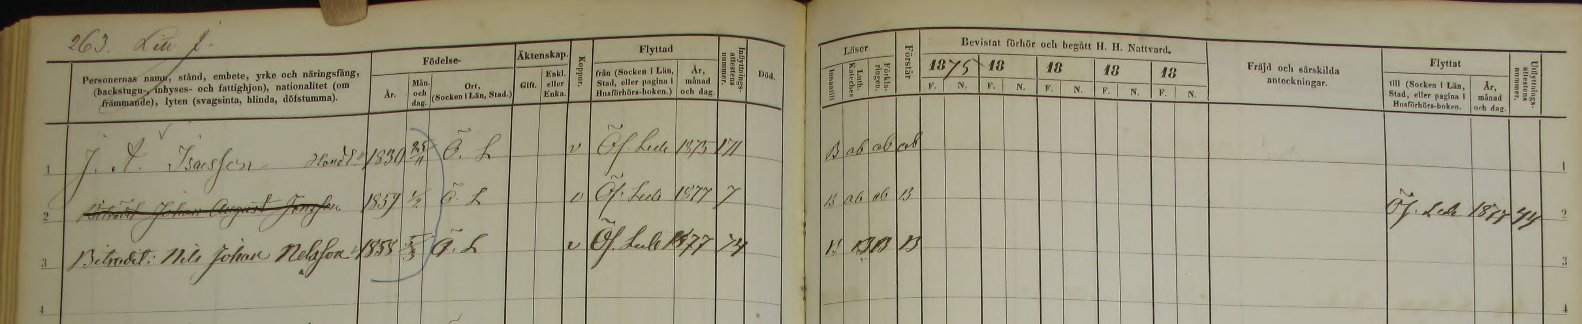 263.
Personernas namn, stånd, embete, yrke och näringsfång,
(backstugu-, inhyses- och fattighjon), nationalitet (om
främmande), lyten (svagsinta, blinda, döfstumma).
Födelse-
År.
Mån.
och
dag.
Ort,
(Socken i Län, Stad.)
Äktenskap.
Gift.
Enkl.
eller
Enka.
Koppor.
Flyttad
från (Socken i Län,
Stad, eller pagina i
Husförhörs-boken.)
År,
månad
och dag.
Inflyttnings-
attestens
nummer.
Död.
Läser
Innantill
Luth.
Kateches
Förkla-
ringen.
Förstår
Bevistat förhör och begått H. H. Nattvard.
1875 18 18 18 18
F. N. F. N. F. N. F. N. F. N.
Fräjd och särskilda
anteckningar.
Flyttat
till (Socken i Län,
Stad, eller pagina i
Husförhörs-boken.
År,
månad
och dag.
Utflyttnings-
attestens
nummer.
1 J. A. Isacsson Handl. 1830 Ö. L v Öf. Lule 1875 171 B ab ab ab 1
2 Beträdet Johan August Jonsson 1859 1/2 Ö. L v Öf. Lule 1877 7 B ab ab B Öf. Lule 1877 44 2
3 Biträdet. Nils Johan Nelsson 1858 Ö. L v Öf. Lule 1877 74 B B B B 3
4 4